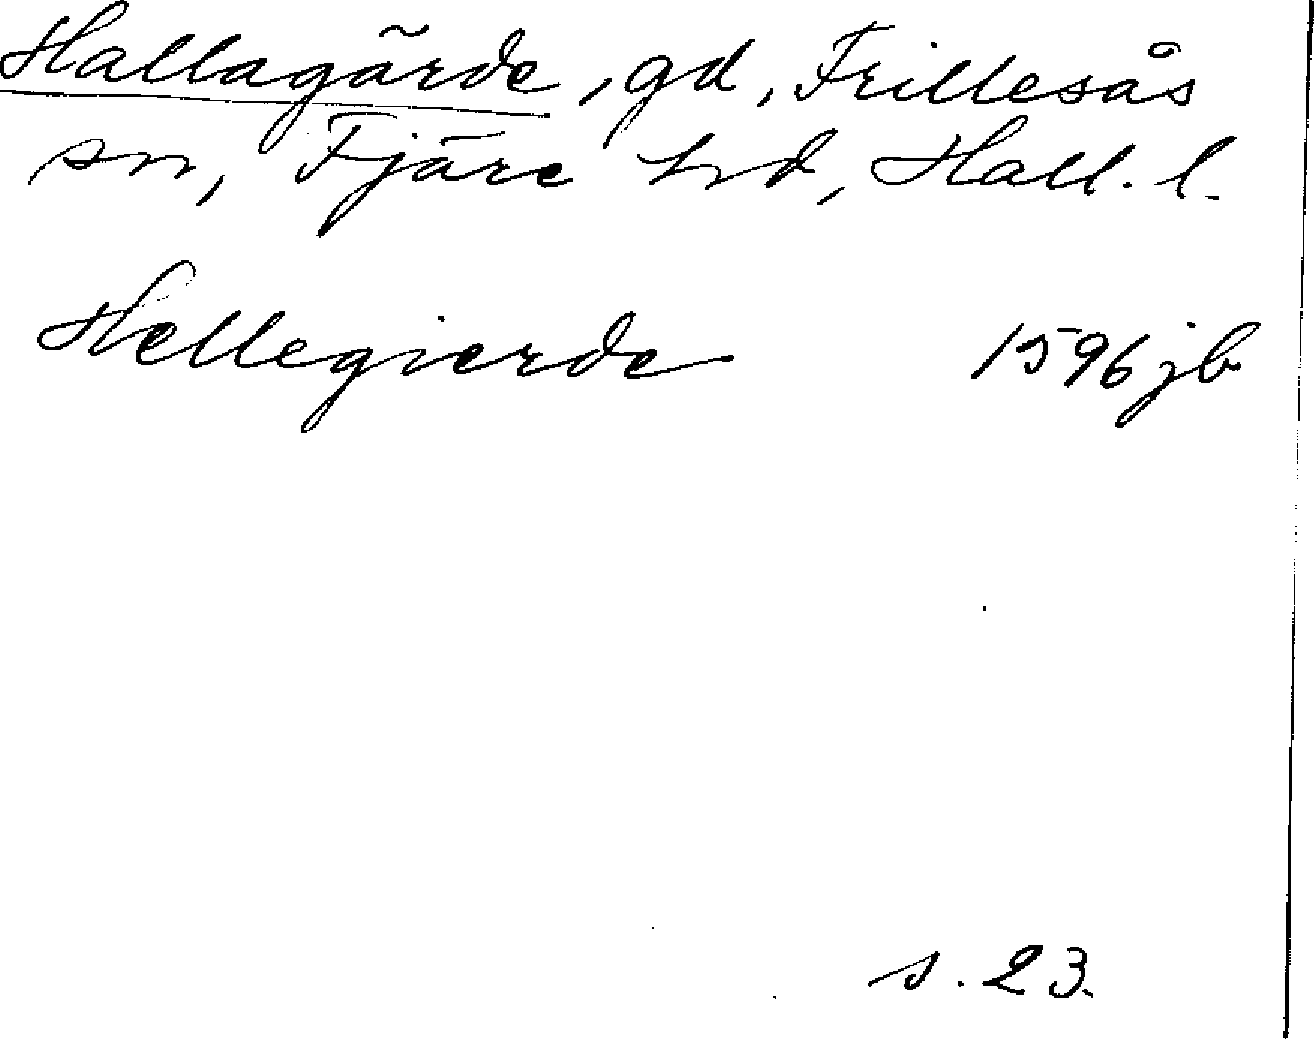 Hallagärde, gd, Frillesås
sn, Fjäre hd, Hall. l.
Hellegierde 1596 jb
s. 23.